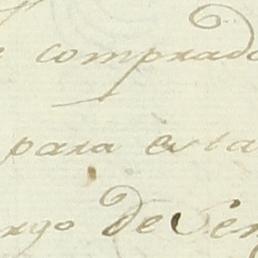 comprado
para esta
rgo de Ser